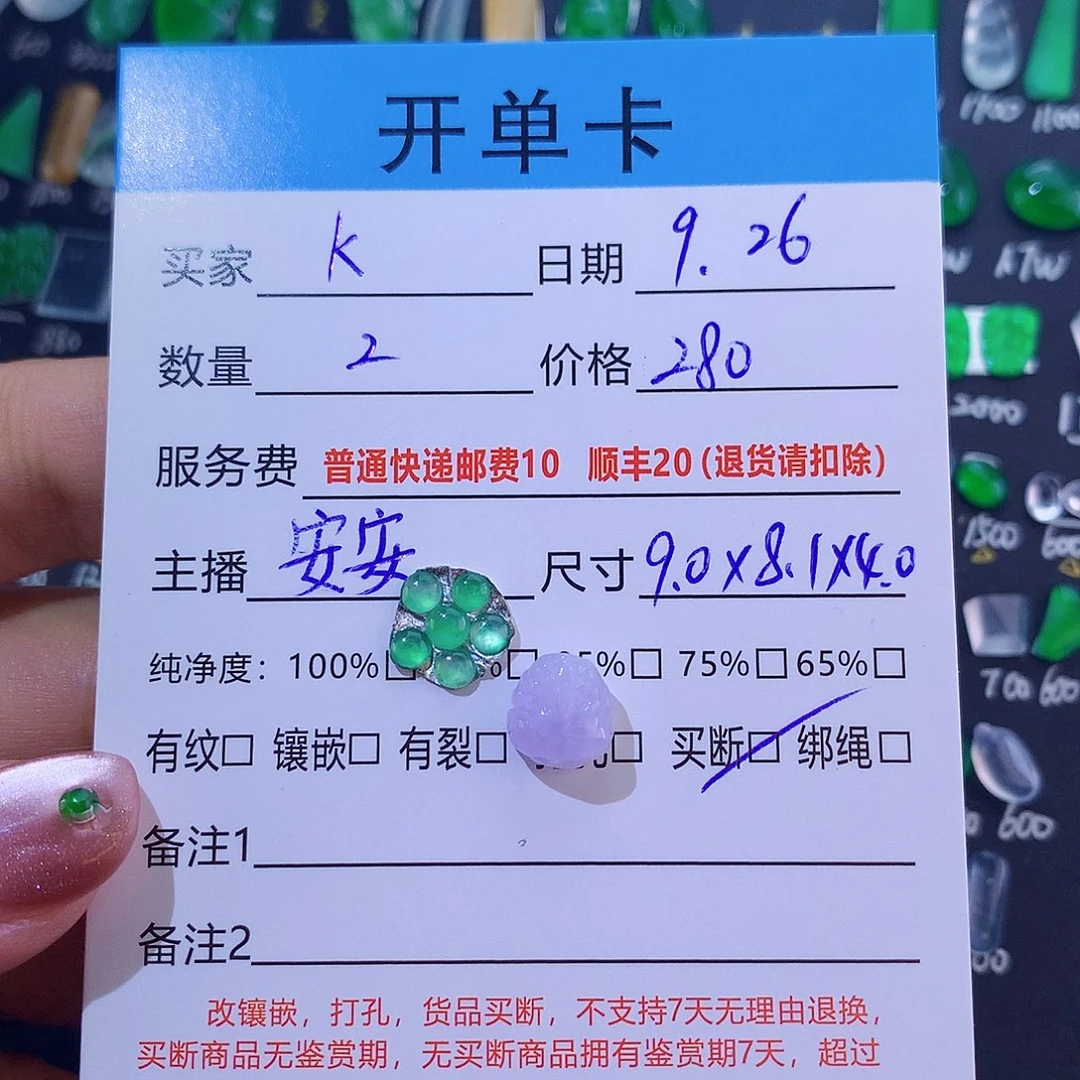 开单卡
买家 K 日期 9.26
数量 2 价格 280
服务费 普通快递邮费10 顺丰20(退货请扣除)
主播 安安 尺寸 9.0x8.1x4.0
纯净度：100%□ 5%□ 75%□ 65%□
有纹□ 镶嵌□ 有裂□ □ 买断□ 绑绳□
备注1
备注2
改镶嵌，打孔，货品买断，不支持7天无理由退换，
买断商品无鉴赏期，无买断商品拥有鉴赏期7天，超过
1100
1100
2000
1500
600
700
600
600